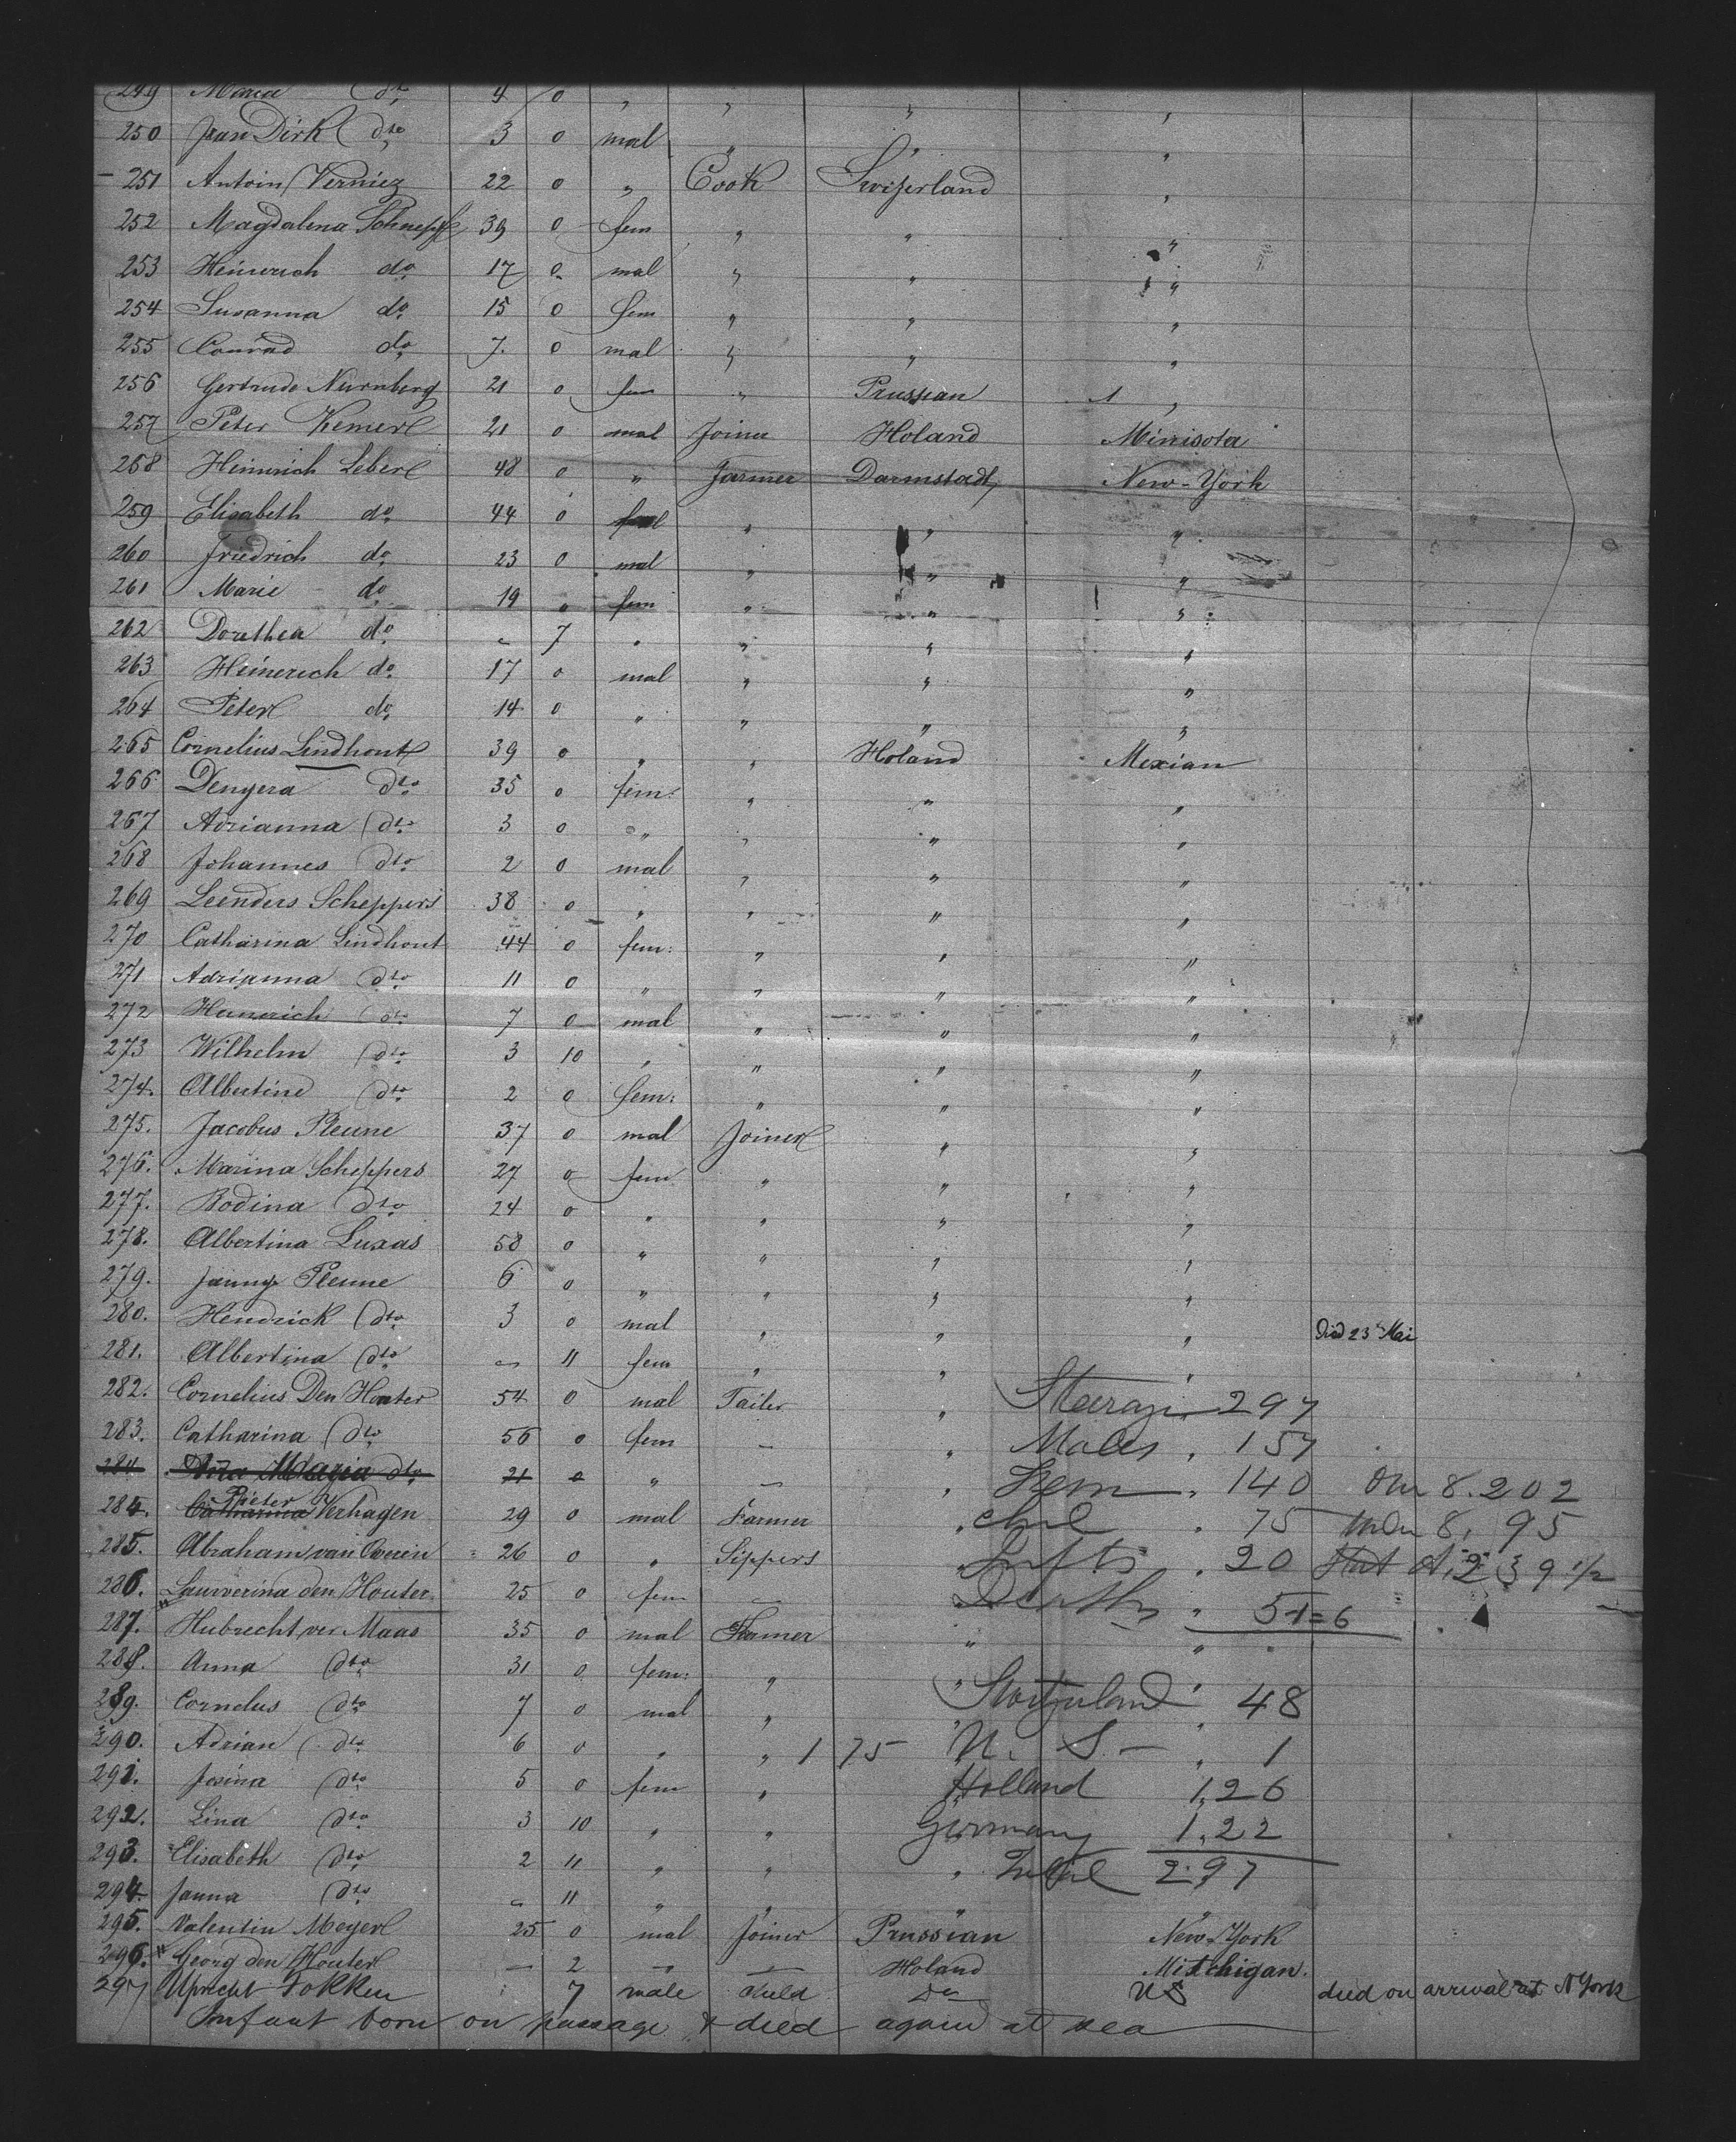 249 Maria do 4 0 " " " "
250 Jean Dirk dto 3 0 mal " " "
251 Antoin Verniez 22 0 " Cook Swizerland "
252 Magdalena 39 0 fem " " "
253 Heinerich do 17 0 mal " " "
254 Susanna do 15 0 fem " " "
255 Conrad do 7 0 mal " " "
256 Gertrude Nürnberg 21 0 fem " Prussian "
257 Peter 21 0 mal Joiner Holand Minisota
258 Heinrich Leber 48 0 " Farmer Darmstadt New-York
259 Elisabeth do 44 0 " " "
260 Friedrich do 23 0 mal " " "
261 Marie do 19 0 fem " " "
262 Dorethea do - 7 " " " "
263 Heinerich do 17 0 mal " " "
264 Peter do 14 0 " " " "
265 Cornelius Lindhout 39 0 " " Holand
266 Denyera dto 35 0 fem: " " "
267 Adrianna dto 3 0 " " " "
268 Johannes dto 2 0 mal " " "
269 Leenders Scheppers 38 0 " " " "
270 Catharina Lindhout 44 0 fem: " " "
271 Adrianna dto 11 0 " " " "
272 Heinerich dto 7 0 mal " " "
273 Wilhelm dto 3 10 " " " "
274. Albertine dto 2 0 fem: " " "
275. Jacobus Pleune 37 0 mal Joiner " "
276. Marina Scheppers 27 0 fem " " "
277. Bodina dto 24 0 " " " "
278. Albertina Luxas 58 0 " " " "
279. Janny Pleune 6 0 " " " "
280. Hendrick dto 3 0 mal " " " Died 23 Mai
281. Albertina dto - 11 fem " " "
282. Cornelius Den Houter 54 0 mal Tailer " 297
283. Catharina dto 56 0 fem - " Males " 157
284 Maria dto 21 0 " - " Fem " 140 Ovr 8. 202
284. Catharina Pieter Verhagen 29 0 mal Farmer " chil " 75 undr 8, 95
285. Abraham van 26 0 " Sippers " Infts " 20 239 1/2
286. den Houter 25 0 fem - Deaths " 51=6
287. Hubrecht ver Maas 35 0 mal Farmer " "
288. Anna dto 31 0 fem: " " Switzerland " 48
289. Cornelus dto 7 0 mal " " "
290. Adrian dto 6 0 " " 1 75 U. S. - " 1
291. Josina dto 5 0 fem " Holland 1,26
292. Lina dto 3 10 " " Germany 1,22
293. Elisabeth dto 2 11 " " " Total 297
294. Janna dto - 11 " " " "
295. Valentin Meyer 25 0 mal Joiner Prussian New-York
296. Georg den Houter - 2 - - Holand Mitchigan.
297 Fokken 7 male Child Do US died on arrival at N York
Infant born on passage & died again at sea